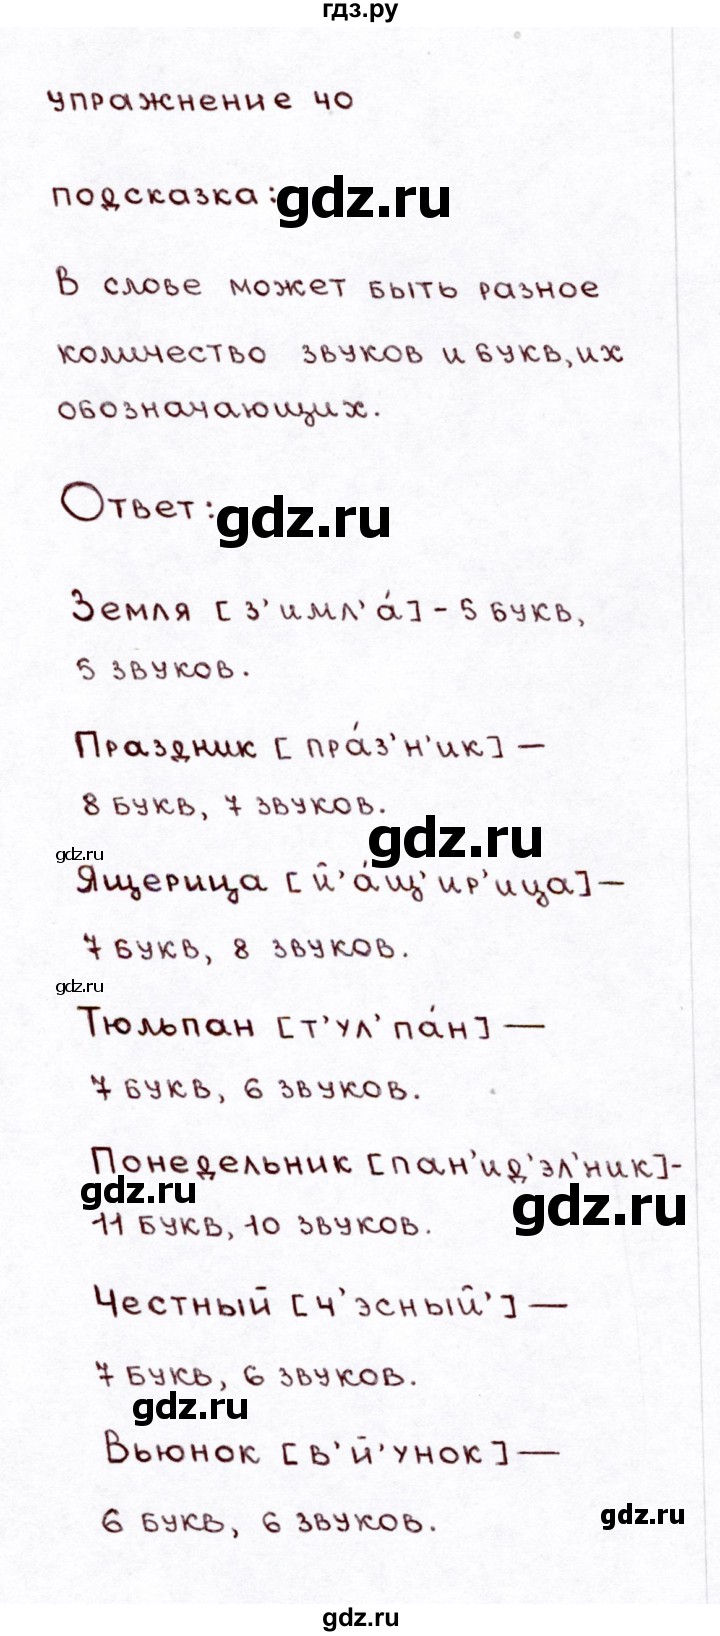 гдз.ру
упражнение 40
подсказка:
gdz.ru
В слове может быть разное
количество звуков и букв, их
обозначающих.
Ответ:
gdz.ru
Земля [з'имл'а́] - 5 букв,
5 звуков.
Праздник [пра́з'н'ик] —
8 букв, 7 звуков.
gdz.ru
gdz.ru
Ящерица [й'а́щ'ир'ица] —
7 букв, 8 звуков.
gdz.ru
Тюльпан [т'ул'па́н] —
7 букв, 6 звуков.
Понедельник [пан'ид'эл'ник] -
gdz.ru
gdz.ru
11 букв, 10 звуков.
Честный [ч'эсный'] —
7 букв, 6 звуков.
gdz.ru
Вьюнок [в'й'унок] —
gdz.ru
6 букв, 6 звуков.
gdz.ru